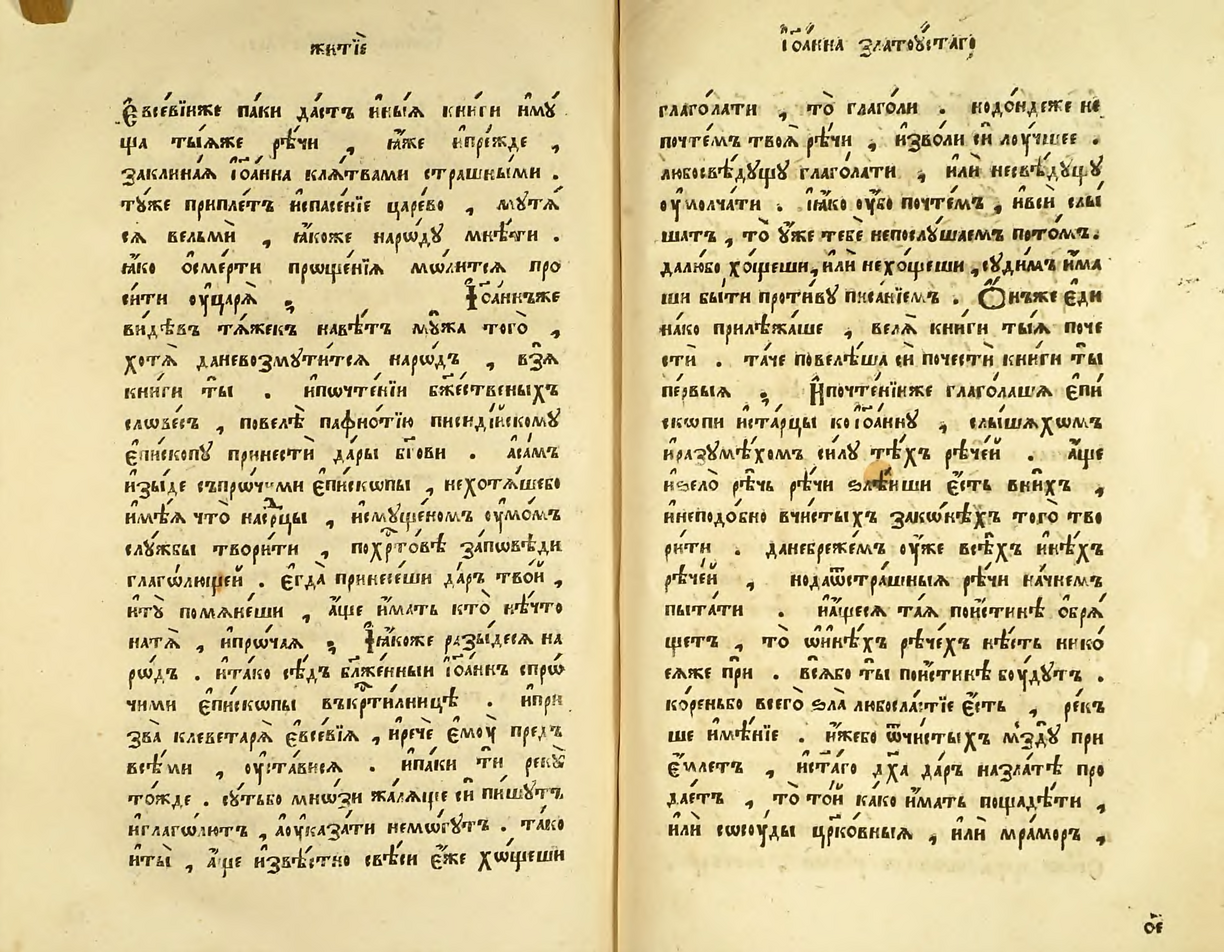 житїѐ
Є҆всевїиже па́ки да́стъ и҆ны́ѧ кни́ги и҆мꙋ́
ща ты́ѧже рѣ́чи , ꙗ҆́же и҆пре́жде ,
заклина́ѧ і҆ѡа́нна клѧ́твами стра́шными .
тꙋ́же припле́тъ и҆спасе́нїе ца́рево , мꙋтѧ́
сѧ вельмѝ , ꙗ҆́коже наро́дꙋ мнѣ́ти .
ꙗ҆́ко ѻ҆сме́рти прѡще́нїѧ мо́литсѧ про
си́ти ᲂу҆царѧ̀ ;  І҆ѡа́ннъже
ви́дѣвъ тѧ́жекъ навѣ́тъ мꙋ́жа того̀ ,
хотѧ̀ даневозмꙋти́тсѧ наро́дъ , взѧ̀
кни́ги ты̀ . и҆почте́нїи бж҃е́ственыхъ
слове́съ , повелѣ̀ пафнꙋ́тїю писиді́йскомꙋ
є҆пи́скопꙋ принестѝ да́ры бг҃ови . а҆са́мъ
и҆зы́де съпро́чими є҆пи́скопы , нехотѧ́шебо
и҆мѣ́ѧ что̀ насрⷣцы , и҆смꙋще́номъ ᲂу҆мо́мъ
слꙋ́жбы твори́ти , похрⷭто́вѣ за́повѣди
глаго́лющей . є҆гда̀ принесе́ши да́ръ тво́й ,
и҆тꙋ̀ помѧне́ши , а҆́ще и҆́мать кто̀ нѣ́что
натѧ̀ , и҆про́чаѧ ; Ꙗ҆́коже разы́десѧ на
ро́дъ . и҆та́ко сѣ́дъ бл҃же́нныи і҆ѡа́ннъ спро́
чими є҆пи́скопы въкрⷭти́лницѣ . и҆при
зва̀ клеветарѧ̀ є҆все́вїѧ , и҆речѐ є҆мᲂу̀ пре́дъ
всѣ́ми , ᲂу҆ста́висѧ . и҆па́ки тѝ рекꙋ̀
то́жде . сꙋ́тьбо мно́зи жалѧ́ще си̑ пи́шꙋтъ
и҆глаго́лютъ , а҆ᲂу҆каза́ти немо́гꙋтъ . та́ко
и҆ты̀ , а҆́ще и҆звѣ́стно свѣ́си є҆́же хо́щеши
і҆ѡа́нна златоꙋ́стагѡ
глаго́лати , то̀ глаго́ли . нодо́ндеже не
почте́мъ твоѧ̀ рѣ́чи , и҆зво́ли си̑ лᲂу́чшее .
любосвѣ́дꙋщꙋ глаго́лати , и҆лѝ несвѣ́дꙋщꙋ
ᲂу҆молча́ти . ꙗ҆́ко ᲂу҆́бо почте́мъ , и҆всѝ слы́
шатъ , то̀ ᲂу҆́же тебѐ непослꙋ́шаемъ пото́мъ .
да́любо хо́щеши , и҆лѝ нехо́щеши , сꙋди́мъ и҆́ма
ши бы́ти проти́вꙋ писа́нїемъ . Ѻ҆́нъже є҆ди
на́ко прилѣжа́ше , велѧ̀ кни́ги ты́ѧ поче
стѝ . та́че повелѣ́ша си̑ почестѝ кни́ги ты̀
пе́рвыѧ . И҆почте́нїиже глаго́лашѧ є҆пи́
скопи и҆ста́рцы коі҆ѡа́ннꙋ , слы́шѧхомъ
и҆разꙋмѣ́хомъ си́лꙋ тѣ́хъ рѣче́й . а҆́ще
и҆ѕело̀ рѣ́чь рѣ́чи ѕлѣ́иши є҆́сть вни́хъ ,
и҆неподо́бно вчи́стыхъ зако́нѣхъ того̀ тво
ри́ти . данебреже́мъ ᲂу҆́же всѣ́хъ и҆нѣ́хъ
рѣче́й , нодаѿстра́шныѧ рѣ́чи на́чнемъ
пыта́ти . и҆а҆́щесѧ та́ѧ пои́стинѣ ѻ҆брѧ́
щетъ , то̀ ѡ҆и҆нѣ́хъ рѣче́хъ нѣ́сть нико
еѧ́же прѝ . всѧ́бо ты̀ пои́стинѣ бᲂу́дꙋтъ .
ко́реньбо всего̀ ѕла̀ любосла́стїе є҆́сть , ре́къ
ше и҆мѣ́нїе . и҆́жебо ѿчи́стыхъ мздꙋ̀ при
е҆́млетъ , и҆ст҃а́го дх҃а да́ръ назла́тѣ про
дае́тъ , то̀ то́й ка́ко и҆́мать пощадѣ́ти ,
и҆лѝ сосᲂу́ды црⷪ҇ко́вныѧ , и҆лѝ мра́моръ ,
ое҃